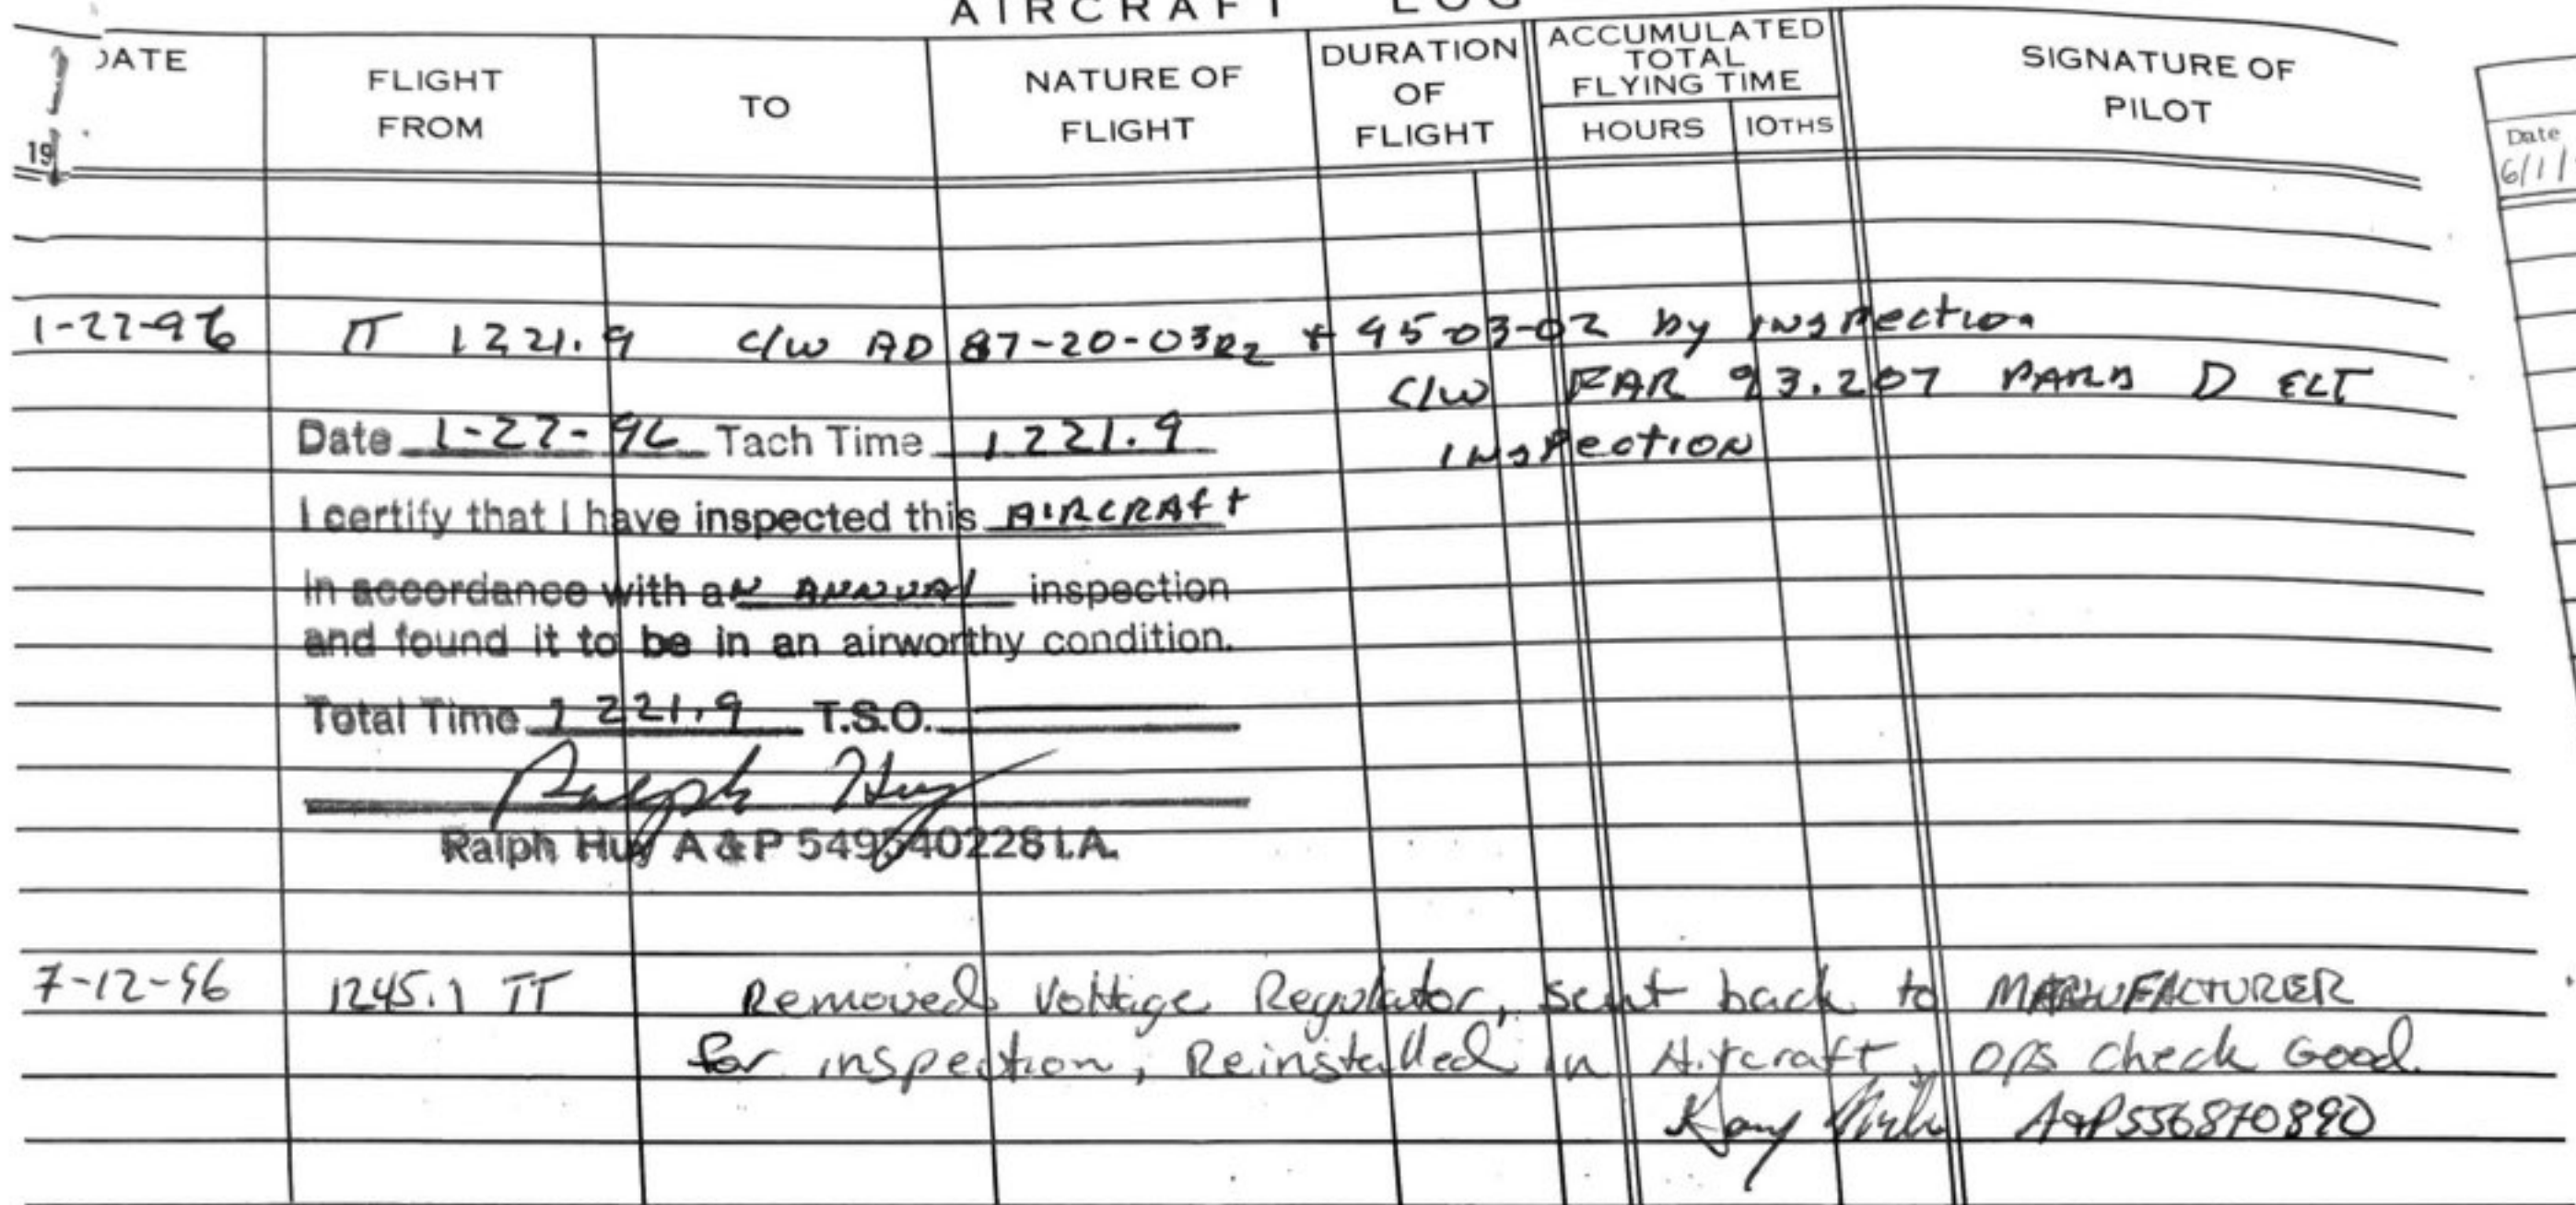 AIRCRAFT LOG
DATE
19
FLIGHT FROM
TO
NATURE OF FLIGHT
DURATION OF FLIGHT
ACCUMULATED TOTAL FLYING TIME
HOURS 10THS
SIGNATURE OF PILOT
Date
6/1/
1-22-96 TT 1221.9 C/W AD 87-20-03R2 + 95-03-02 by INSPECTION
C/W FAR 93.207 PARA D ELT
INSPECTION
Date 1-22-96 Tach Time 1221.9
I certify that I have inspected this AIRCRAft
in accordance with aN ANNUAl inspection
and found it to be in an airworthy condition.
Total Time 1221.9 T.S.O.
Ralph Huy
Ralph Huy A & P 549540228 I.A.
7-12-96 1245.1 TT Removed Voltage Regulator, sent back to MANUFACTURER
for inspection, Reinstalled in Aircraft, ops check Good.
A&P556870890